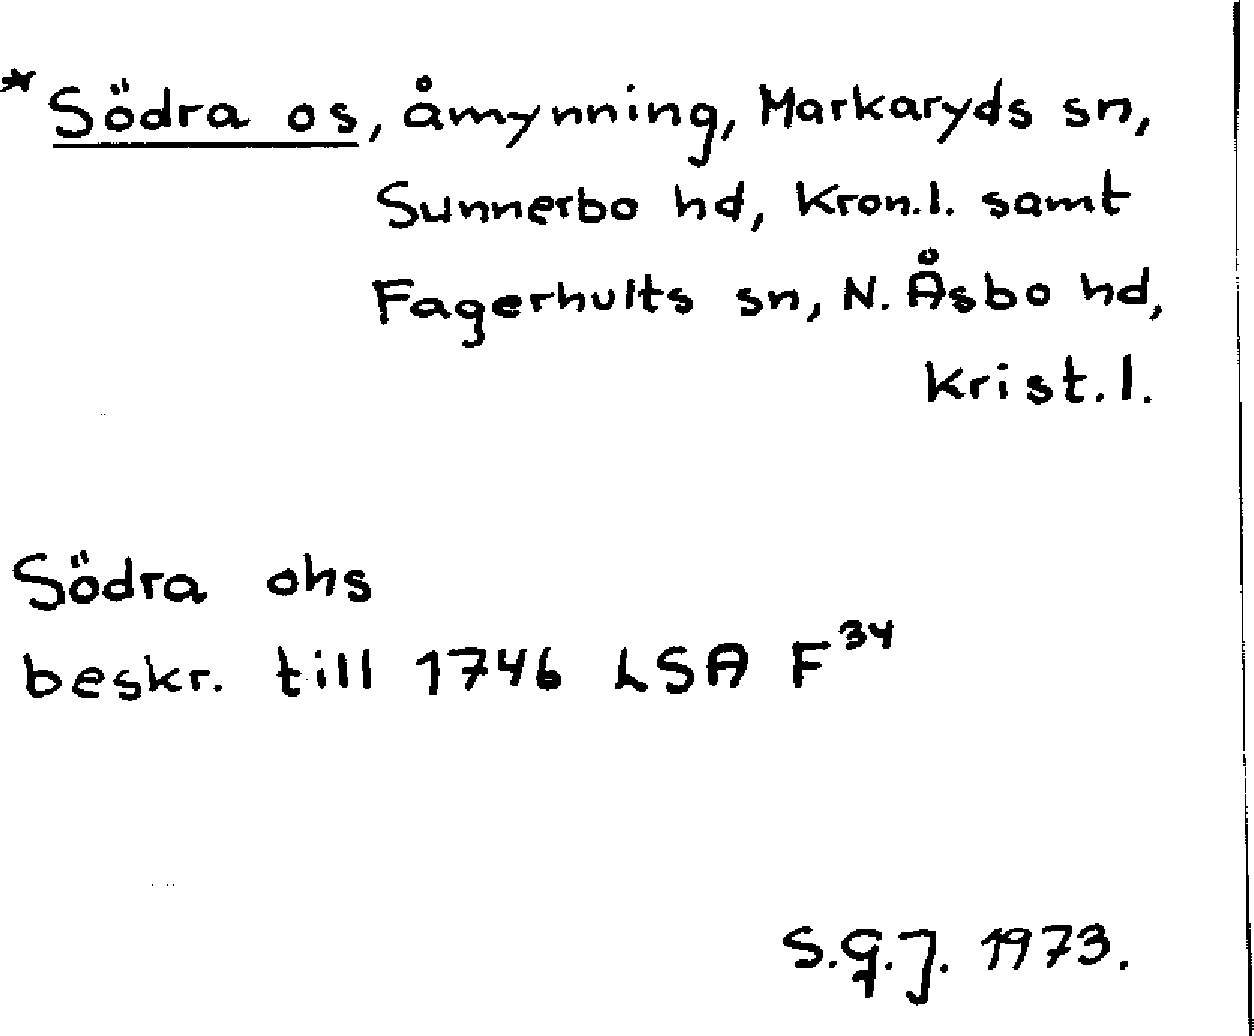 *Södra os, åmynning, Markaryds sn,
Sunnerbo hd, Kron.l. samt
Fagerhults sn, N. Åsbo hd,
Krist.l.
Södra ohs
beskr. till 1746 LSA F³⁴
S.G.J. 1973.